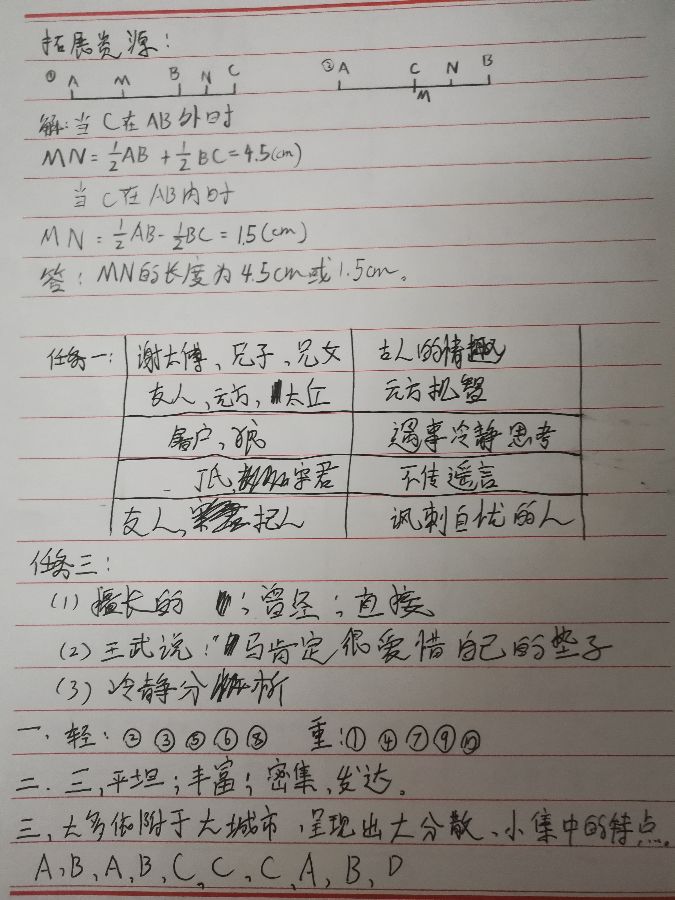 拓展资源：
① A M B N C ② A C N B
M
解：当C在AB外时
MN=½AB+½BC=4.5(cm)
当C在AB内时
MN=½AB-½BC=1.5(cm)
答：MN的长度为4.5cm或1.5cm。
任务一： 谢太傅、兄子、兄女 古人的情趣
友人，元方，太丘 元方机智
屠户，狼 遇事冷静思考
丁氏，宋君 不传遥言
友人，杞人 讽刺自忧的人
任务三：
(1) 擅长的；曾经；直接
(2) 王武说：“马肯定很爱惜自己的垫子
(3) 冷静分析
一. 轻：②③⑤⑥⑧ 重：①④⑦⑨⑩
二. 三，平坦；丰富；密集，发达。
三，大多依附于大城市，呈现出大分散、小集中的特点。
A，B，A，B，C，C，C，A，B，D